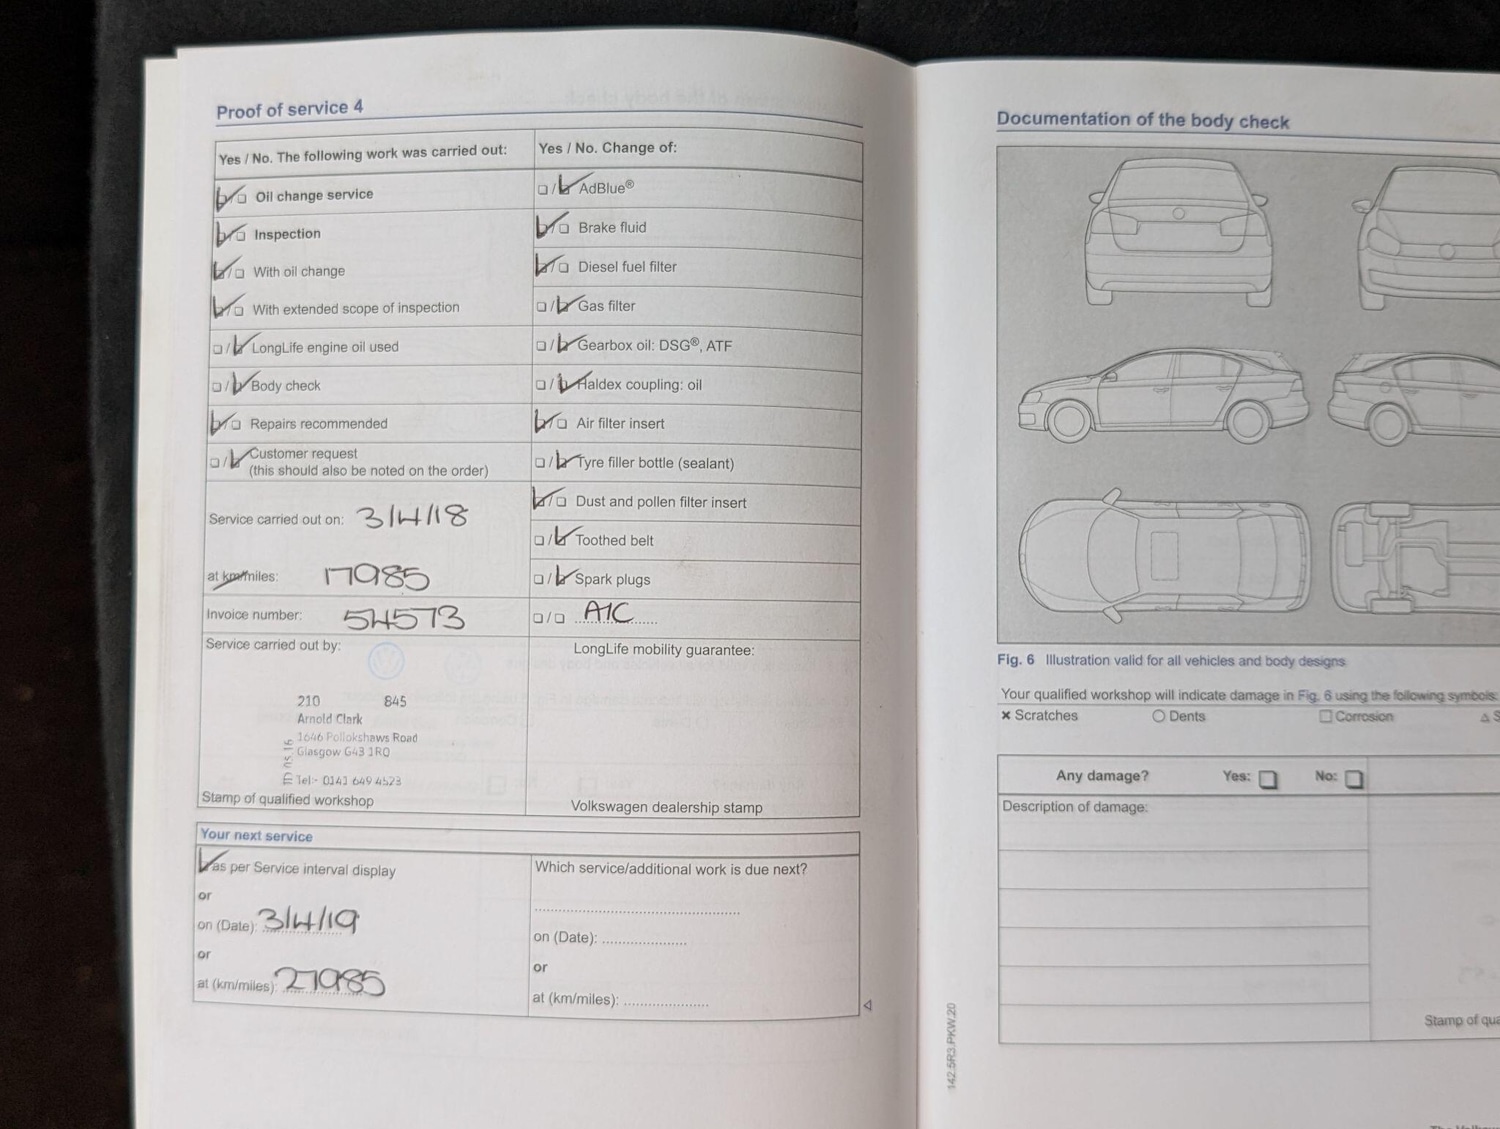 Proof of service 4
Yes / No. The following work was carried out:
Oil change service
Inspection
With oil change
With extended scope of inspection
LongLife engine oil used
Body check
Repairs recommended
Customer request
(this should also be noted on the order)
Service carried out on: 3/4/18
at km/miles: 17985
Invoice number: 54573
Service carried out by:
210 845
Arnold Clark
1646 Pollokshaws Road
Glasgow G43 1RQ
Tel:- 0141 649 4523
Stamp of qualified workshop
Yes / No. Change of:
AdBlue®
Brake fluid
Diesel fuel filter
Gas filter
Gearbox oil: DSG®, ATF
Haldex coupling: oil
Air filter insert
Tyre filler bottle (sealant)
Dust and pollen filter insert
Toothed belt
Spark plugs
A1C
LongLife mobility guarantee:
Volkswagen dealership stamp
Your next service
as per Service interval display
or
on (Date): 3/4/19
or
at (km/miles): 27985
Which service/additional work is due next?
on (Date):
or
at (km/miles):
Documentation of the body check
Fig. 6 Illustration valid for all vehicles and body designs
Your qualified workshop will indicate damage in Fig. 6 using the following symbols:
Scratches
Dents
Corrosion
Any damage? Yes: No:
Description of damage:
Stamp of
142.5R3.PKW.20